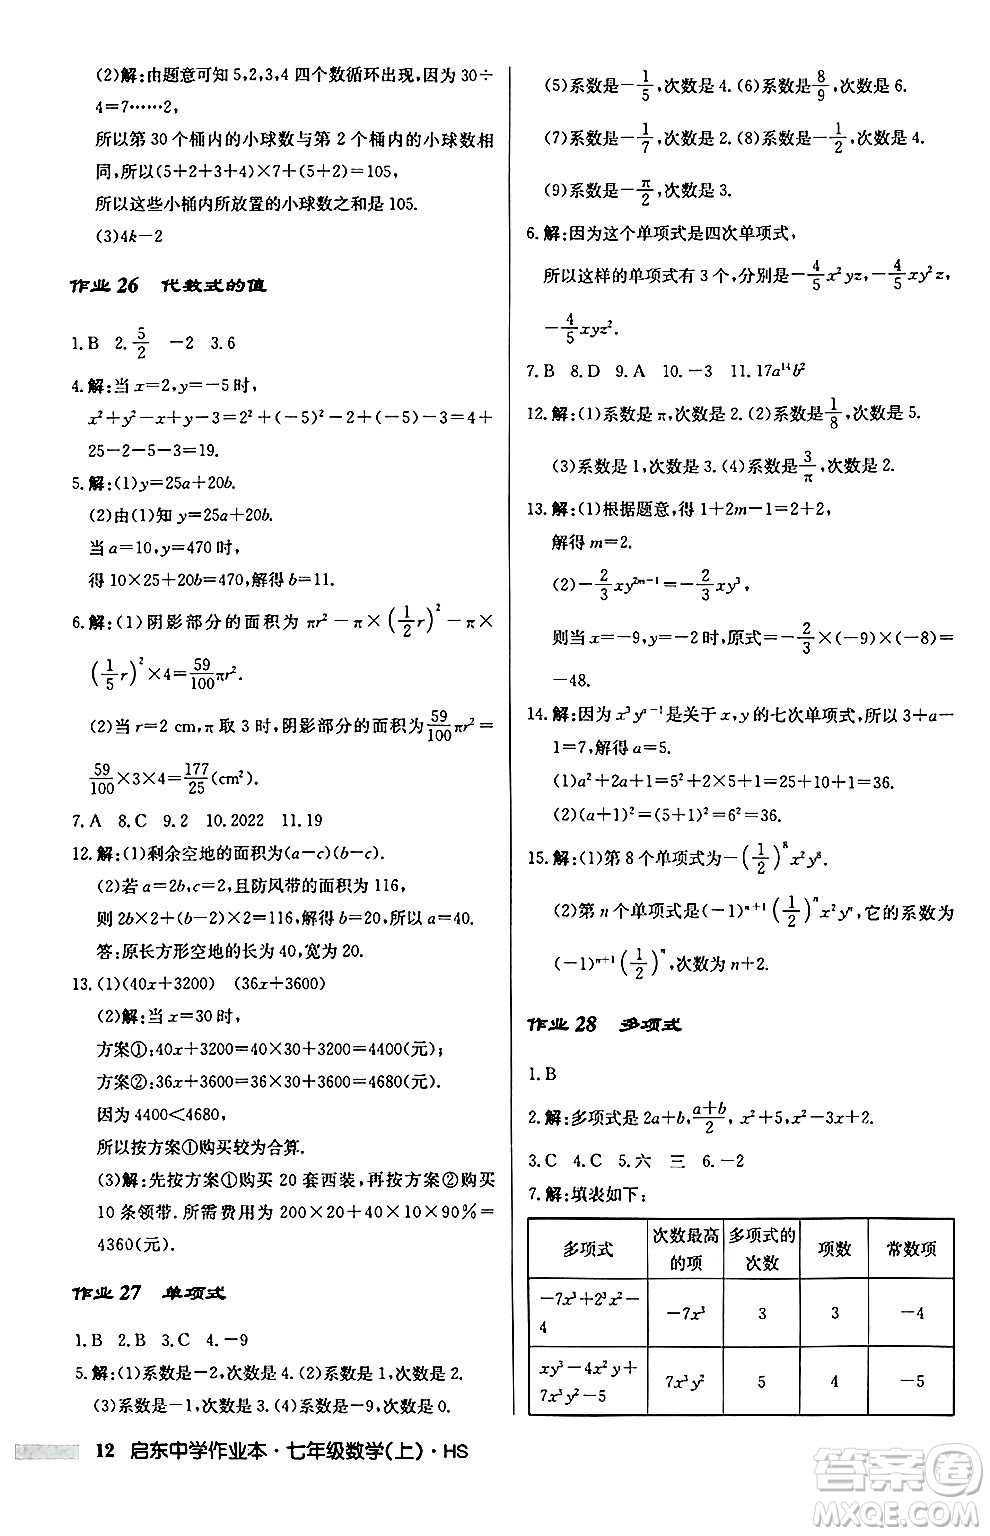 (2)解:由题意可知 5,2,3,4 四个数循环出现,因为 30÷
4=7……2,
所以第 30 个桶内的小球数与第 2 个桶内的小球数相
同,所以(5+2+3+4)×7+5+2=105,
所以这些小桶内所放置的小球数之和是 105.
(3)4k−2
作业 26 代数式的值
1.B 2.5/2 −2 3.6
4.解:当 x=2,y=−5 时,
x²+y²−x−y−3=2²+(−5)²−2+(−5)−3=4+
25−2−5−3=19.
5.解:(1)y=25a+20b.
(2)由(1)知 y=25a+20b.
当 a=10,y=470 时,
得 10×25+20b=470,解得 b=11.
6.解:(1)阴影部分的面积为 πr²−π×(1/2 r)²−π×
(1/5 r)²×4=59/100 πr².
(2)当 r=2 cm,π 取 3 时,阴影部分的面积为 59/100 πr²=
59/100×3×4=177/25(cm²).
7.A 8.C 9.2 10.2022 11.19
12.解:(1)剩余空地的面积为(a−c)(b−c).
(2)若 a=2b,c=2,且防风带的面积为 116,
则 2b×2+(b−2)×2=116,解得 b=20,所以 a=40.
答:原长方形空地的长为 40,宽为 20.
13.(1)(40x+3200) (36x+3600)
(2)解:当 x=30 时,
方案①:40x+3200=40×30+3200=4400(元);
方案②:36x+3600=36×30+3600=4680(元).
因为 4400<4680,
所以按方案①购买较为合算.
(3)解:先按方案①购买 20 套西装,再按方案②购买
10 条领带.所需费用为 200×20+200×10×90%=
4360(元).
作业 27 单项式
1.B 2.B 3.C 4.−9
5.解:(1)系数是−2,次数是 4.(2)系数是 1,次数是 2.
(3)系数是−1,次数是 3.(4)系数是−9,次数是 0.
12 启东中学作业本·七年级数学(上)·HS
(5)系数是−1/5,次数是 2.(6)系数是 8/9,次数是 6.
(7)系数是−1/7,次数是 2.(8)系数是−1/2,次数是 4.
(9)系数是−π/2,次数是 3.
6.解:因为这个单项式是四次单项式,
所以这样的单项式有 3 个,分别是−4/5 x²yz,−4/5 xy²z,
−4/5 xyz².
7.B 8.D 9.A 10.−3 11.17a¹⁴b²
12.解:(1)系数是 π,次数是 2.(2)系数是 1/8,次数是 5.
(3)系数是 1,次数是 3.(4)系数是 3/π,次数是 2.
13.解:(1)根据题意,得 1+2m−1=2+2,
解得 m=2.
(2)−2/3 xy²ᵐ⁻¹=−2/3 xy³,
则当 x=−9,y=−2 时,原式=−2/3×(−9)×(−8)=
−48.
14.解:因为 x³yᵃ⁻¹是关于 x,y 的七次单项式,所以 3+a−
1=7,解得 a=5.
(1)a²+2a+1=5²+2×5+1=25+10+1=36.
(2)(a+1)²=(5+1)²=6²=36.
15.解:(1)第 8 个单项式为−(1/2)⁸x²y⁸.
(2)第 n 个单项式是(−1)ⁿ⁺¹(1/2)ⁿx²yⁿ,它的系数为
(−1)ⁿ⁺¹(1/2)ⁿ,次数为 n+2.
作业 28 多项式
1.B
2.解:多项式是 2a+b,(a+b)/2,x²+5,x²−3x+2.
3.C 4.C 5.六 三 6.−2
7.解:填表如下:
多项式 次数最高的项 多项式的次数 项数 常数项
−7x³+2³x²−4 −7x³ 3 3 −4
xy³−4x²y+7x³y²−5 7x³y² 5 4 −5
答案圈
MXQE.COM